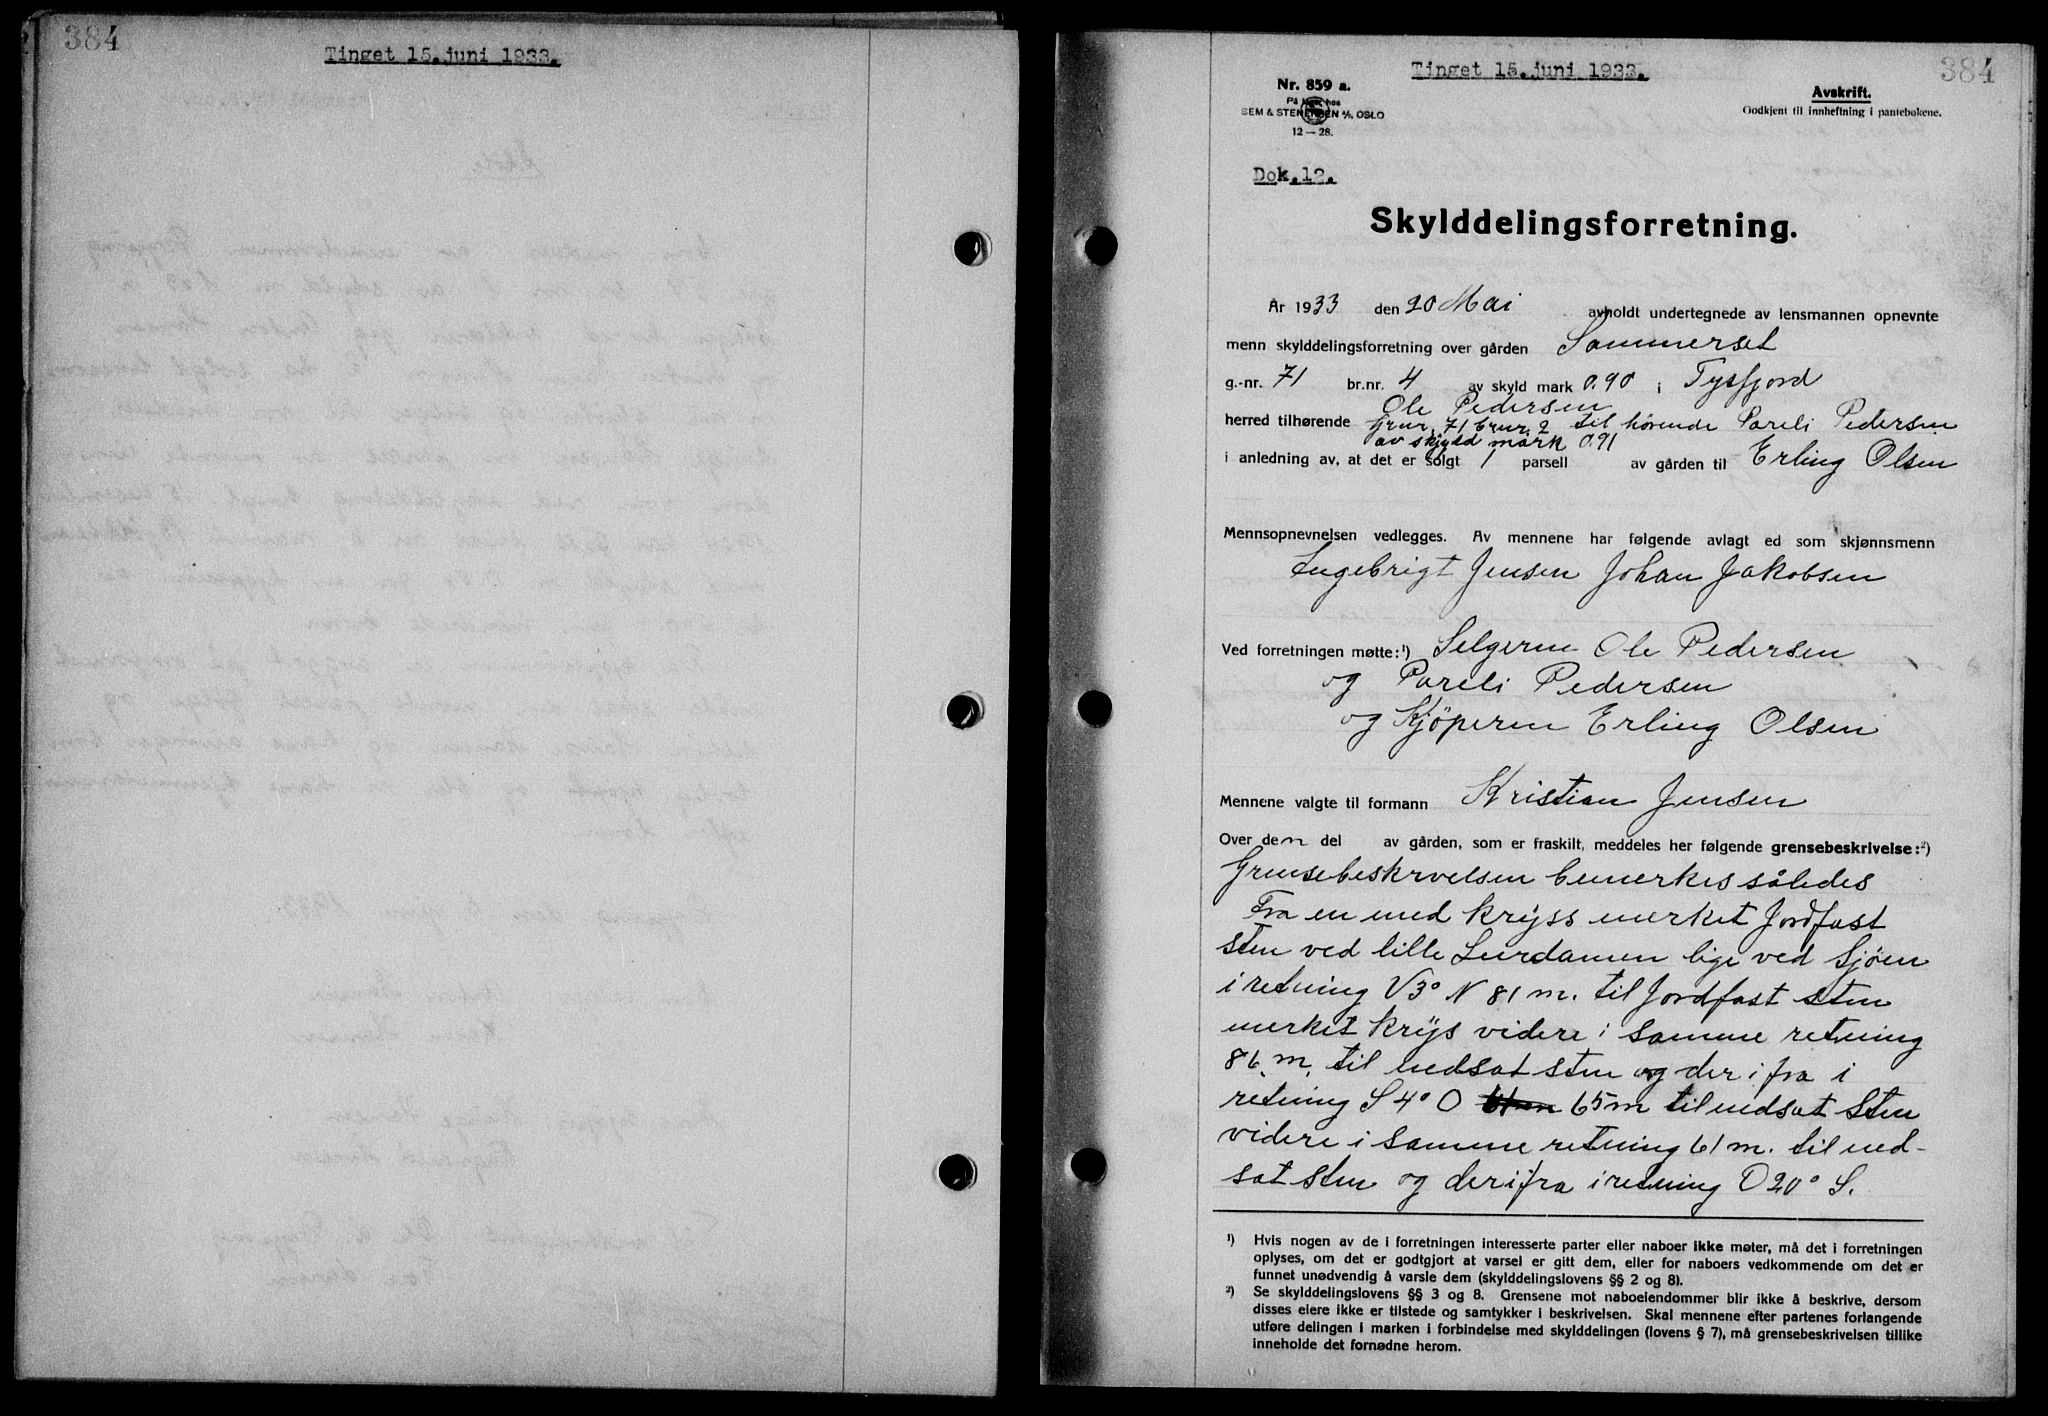 384
Tinget 15. juni 1933.
Tinget 15. juni 1933.
384
Nr. 859 a.
På lager hos
SEM & STENERSEN A/S, OSLO
12 — 28.
Avskrift.
Godkjent til innheftning i pantebøkene.
Dok. 12.
Skylddelingsforretning.
År 1933 den 20 Mai avholdt undertegnede av lensmannen opnevnte
menn skylddelingsforretning over gården Sommerset
g.-nr. 71 br.nr. 4 av skyld mark 0.90 i Tysfjord
Ole Pedersen
herred tilhørende Grnr. 71 brnr. 2 til hörende Pareli Pedersen
av skyld mark 0.91
i anledning av, at det er solgt 1 parsell av gården til Erling Olsen
Mennsopnevnelsen vedlegges. Av mennene har følgende avlagt ed som skjønnsmenn
Ingebrigt Jensen Johan Jakobsen
Ved forretningen møtte:¹) Selgerne Ole Pedersen
og Pareli Pedersen
og Kjöperen Erling Olsen
Mennene valgte til formann Kristian Jensen
Over den del av gården, som er fraskilt, meddeles her følgende grensebeskrivelse:²)
Grensebeskrvelsen bemerkes således
Fra en med kryss merket Jordfast
sten ved lille Leirdamen lige ved Sjöen
i retning V 3° N 81 m. til Jordfast sten
merket krys videre i samme retning
86 m. til nedsat sten og der i fra i
retning S 4° O 65 m til nedsat Sten
videre i samme retning 61 m. til ned-
sat sten og derifra i retning O 20° S.
¹) Hvis nogen av de i forretningen interesserte parter eller naboer ikke møter, må det i forretningen
oplyses, om det er godtgjort at varsel er gitt dem, eller for naboers vedkommende om det er
funnet unødvendig å varsle dem (skylddelingslovens §§ 2 og 8).
²) Se skylddelingslovens §§ 3 og 8. Grensene mot naboeiendommer blir ikke å beskrive, dersom
disses eiere ikke er tilstede og samtykker i beskrivelsen. Skal mennene efter partenes forlangende
utføre delingen i marken i forbindelse med skylddelingen (lovens § 7), må grensebeskrivelsen tillike
inneholde det fornødne herom.